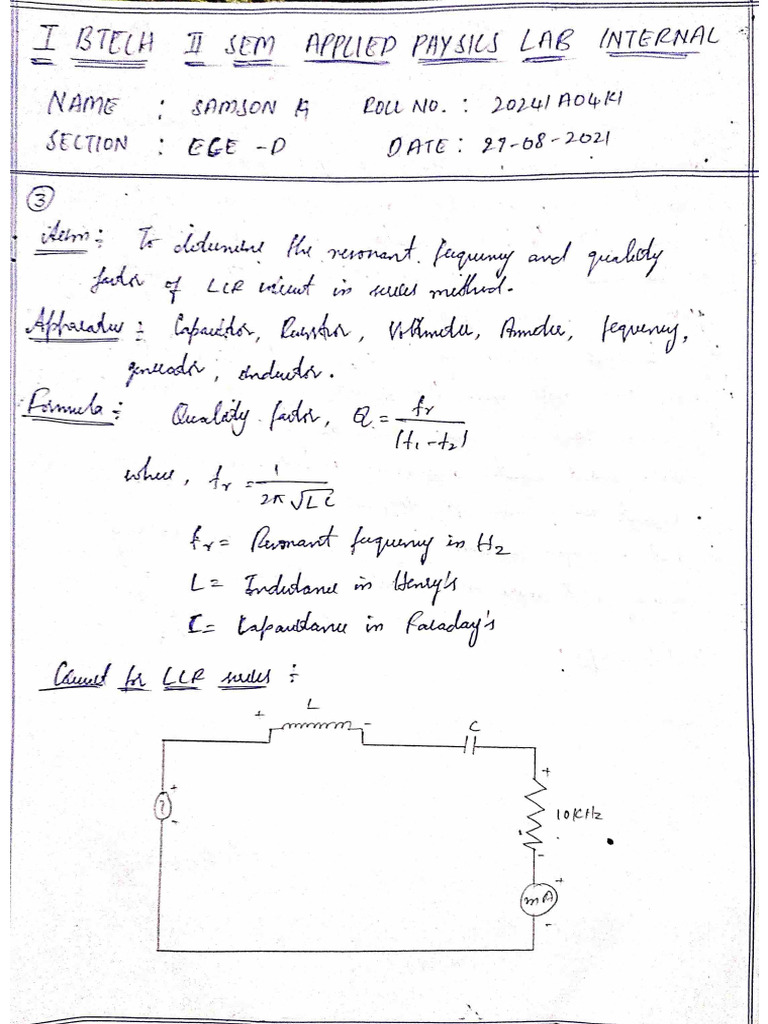 I BTECH II SEM APPLIED PAYSICS LAB INTERNAL
NAME : SAMSON K ROLL NO. : 20241A04K1
SECTION : ECE -D DATE : 27-08-2021
3
Aim : To determine the resonant frequency and quality
factor of LCR circuit in series method.
Apparatus : Capacitor, Resistor, Voltmeter, Ammeter, fequency,
generator, inductor.
Formula : Quality factor, Q = fr / |f1 - f2|
where, fr = 1 / 2π √LC
fr = Resonant frequency in Hz
L = Inductance in Henry's
C = Capacitance in Faraday's
Circuit for LCR series :
+ L -
C
+
+
?
-
10KHz
-
+
mA
-